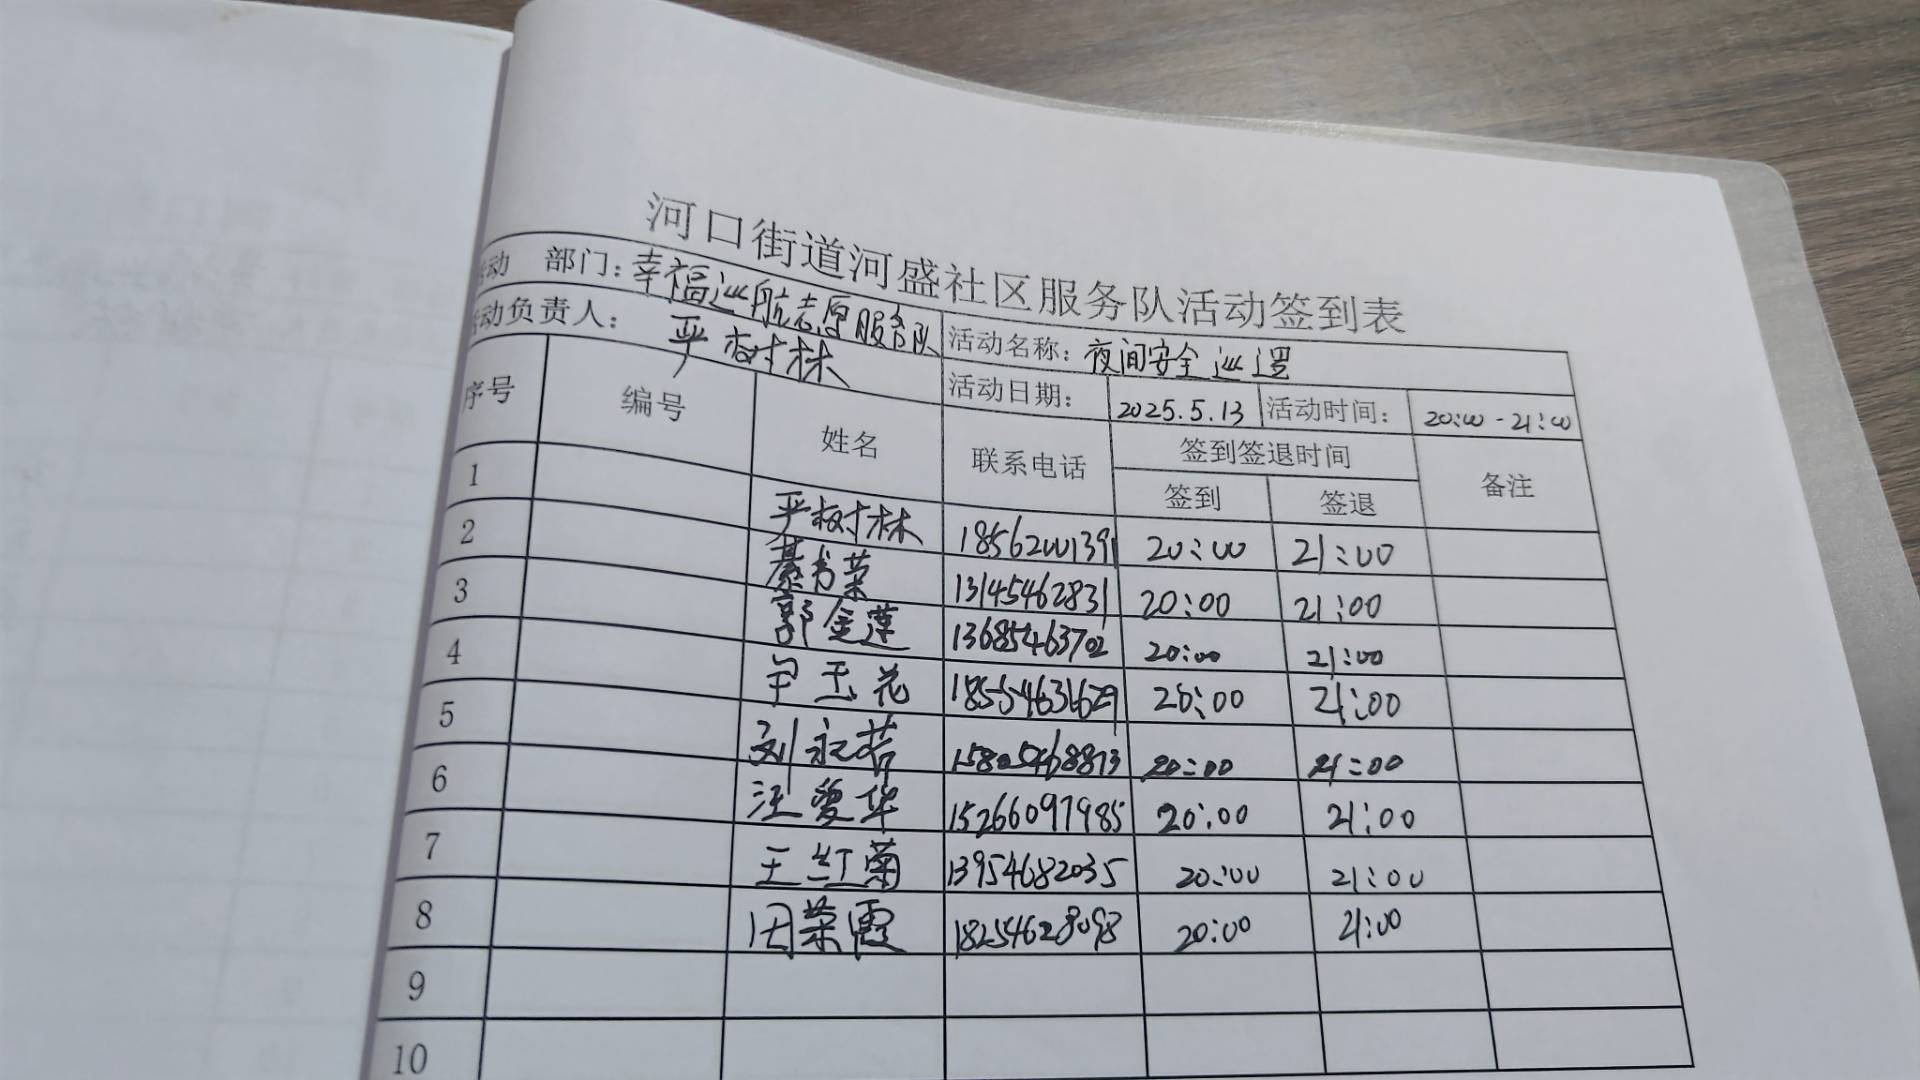 河口街道河盛社区服务队活动签到表
活动 部门：幸福巡航志愿服务队 活动名称：夜间安全巡逻
活动负责人： 严树林 活动日期： 2025.5.13 活动时间： 20:00-21:00
序号 编号 姓名 联系电话 签到签退时间 备注
签到 签退
1 严树林 18562001391 20:00 21:00
2 綦书荣 13145462831 20:00 21:00
3 郭金莲 13685463702 20:00 21:00
4 玉花 20:00 21:00
5 刘永若 15805468873 20:00 21:00
6 汪爱华 15266097985 20:00 21:00
7 王红菊 13954682035 20:00 21:00
8 荣霞 18254628098 20:00 21:00
9
10